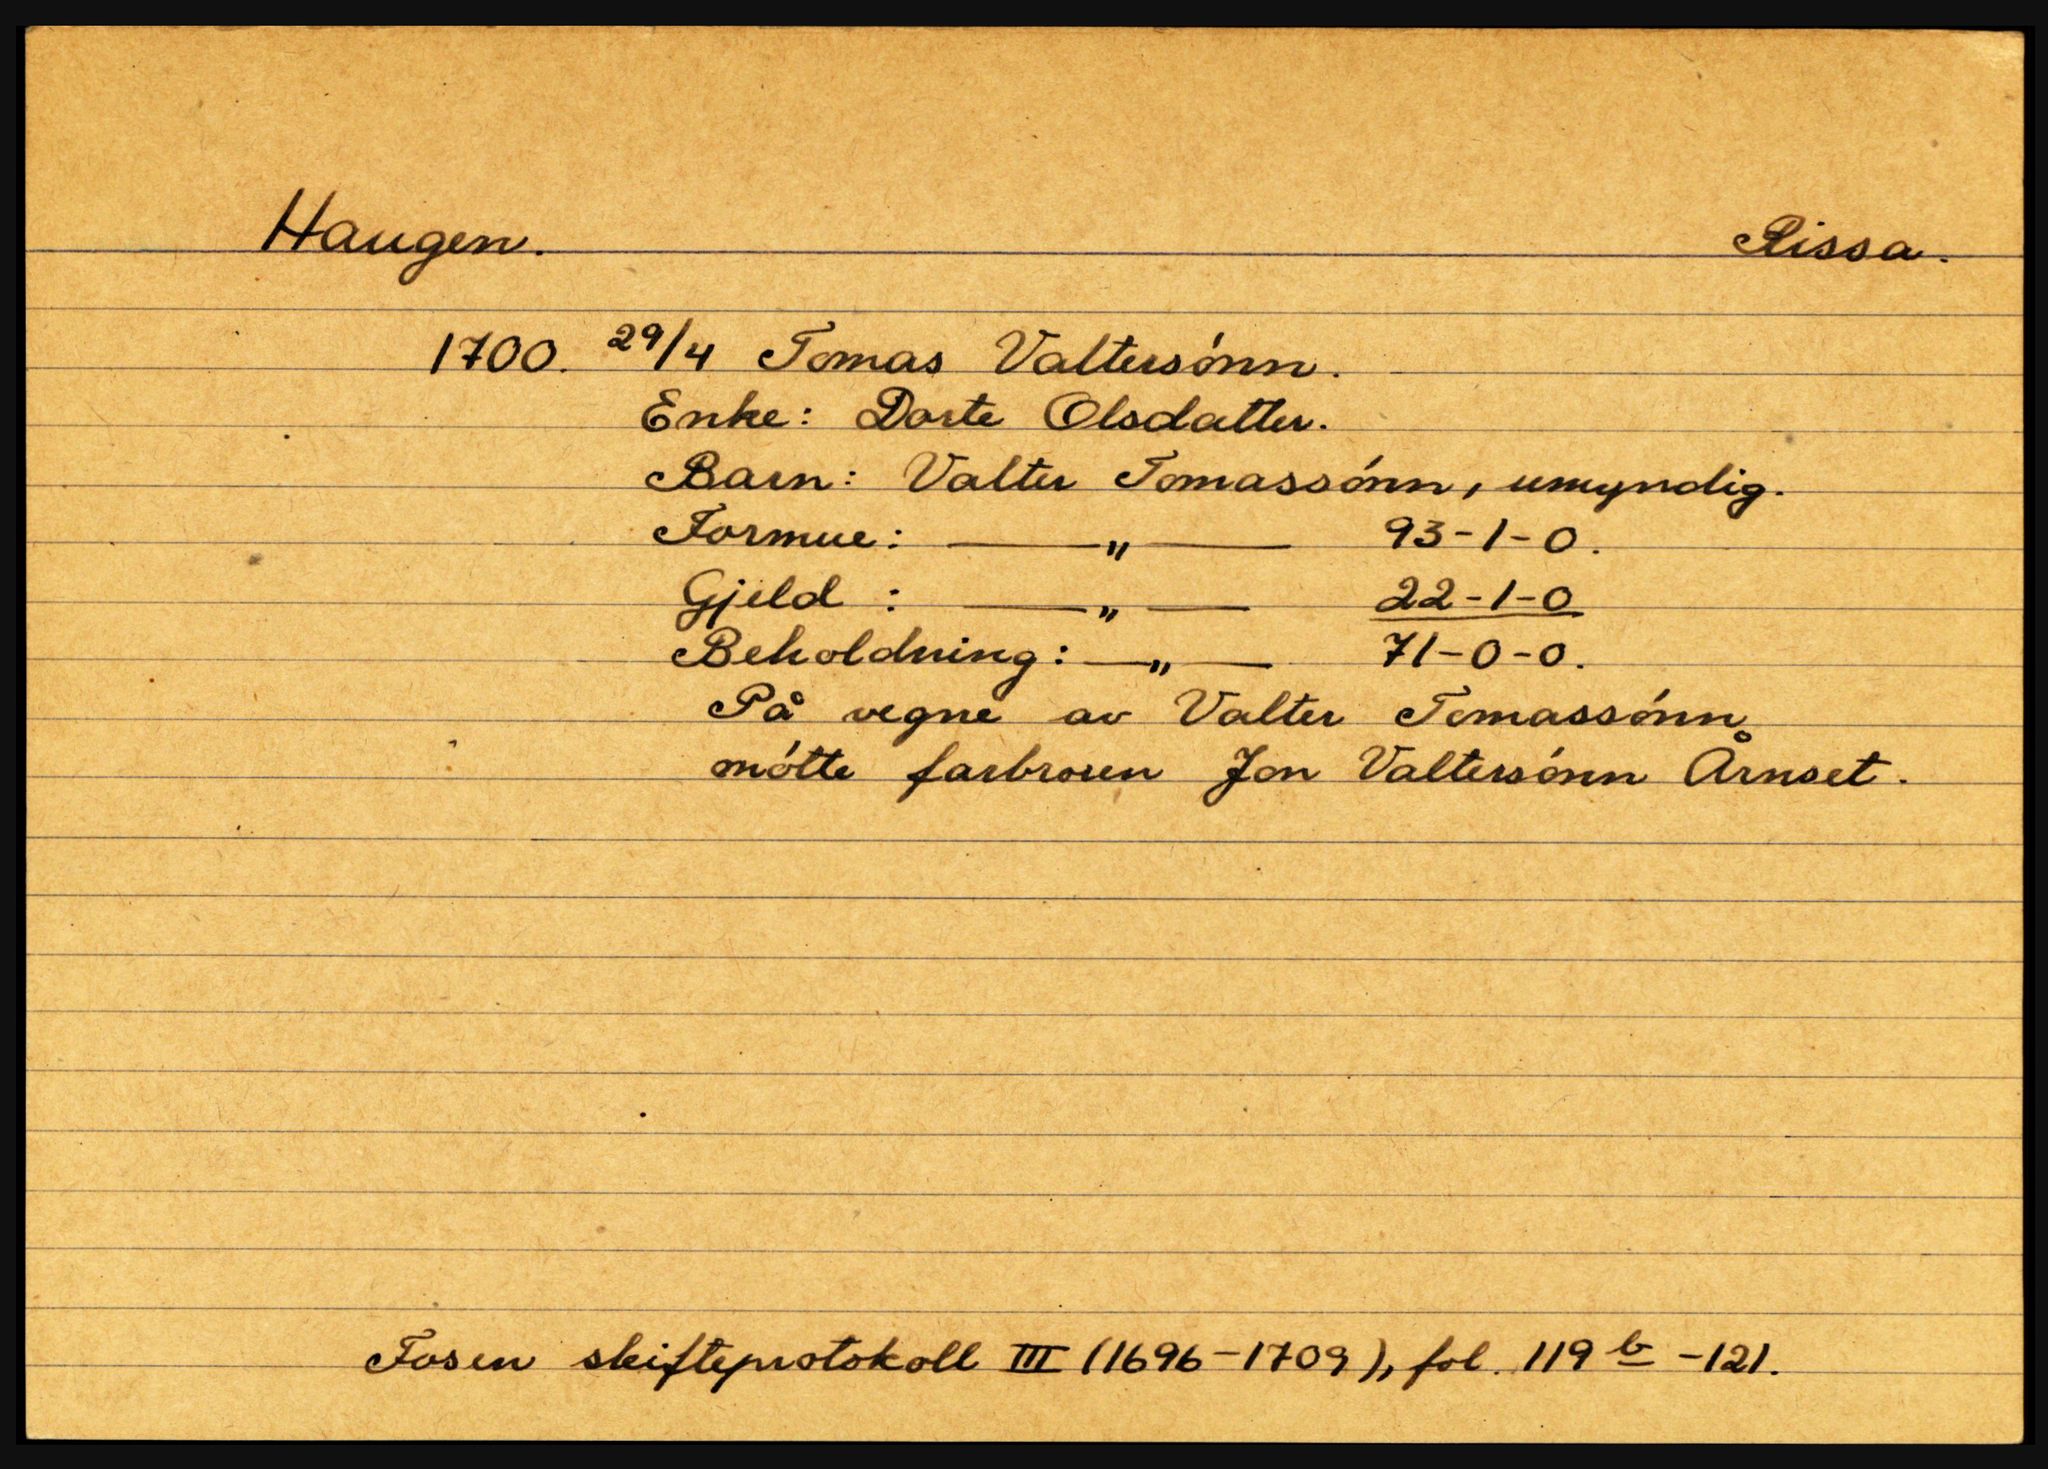 Haugen. Rissa.
1700. 29/4 Tomas Valtersónn.
Enke: Dorte Olsdatter.
Barn: Valter Tomassónn, umyndig.
Formue: — „ — 93-1-0.
Gjeld : — „ — 22-1-0
Beholdning: — „ — 71-0-0.
På vegne av Valter Tomassónn
mótte farbroren Jon Valtersónn Årnset.
Fosen skifteprotokoll III (1696-1709), fol. 119 b -121.